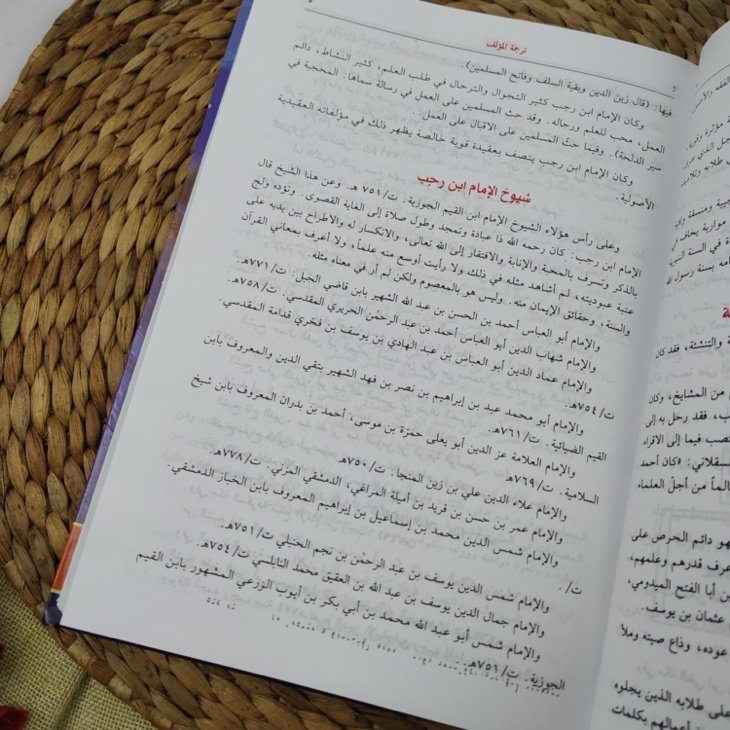 ترجمة المؤلف
فيها: (قال زين الدين وبقية السلف وفاتح المسلمين).
وكان الإمام ابن رجب كثير التجوال والترحال في طلب العلم، كثير النشاط، دائم
العمل، محب للعلم ورجاله. وقد حث المسلمين على العمل في رسالة سماها: (المحجة في
سير الدلجة). وفيها حث المسلمين على الاقبال على العمل.
وكان الإمام ابن رجب يتصف بعقيدة قوية خالصة يظهر ذلك في مؤلفاته العقيدية
الأصولية.
شيوخ الإمام ابن رجب
وعلى رأس هؤلاء الشيوخ الإمام ابن القيم الجوزية. ت/ ٧٥١ هـ. وعن هذا الشيخ قال
الإمام ابن رجب: كان رحمه الله ذا عبادة وتهجد وطول صلاة إلى الغاية القصوى. وتؤده ولهج
بالذكر وتسرف بالمحبة والإنابة والافتقار إلى الله تعالى، والانكسار له والاطراح بين يديه على
عتبة عبوديته، لم أشاهد مثله في ذلك ولا رأيت أوسع منه علماً، ولا أعرف بمعاني القرآن
والسنة، وحقائق الإيمان منه. وليس هو بالمعصوم ولكن لم أر في معناه مثله.
والإمام أبو العباس أحمد بن الحسن بن عبد الله الشهير بابن قاضي الجبل. ت/ ٧٧١هـ.
والإمام شهاب الدين أبو العباس أحمد بن عبد الرحمن الحريري المقدسي. ت/ ٧٥٨هـ.
والإمام عماد الدين أبو العباس بن عبد الهادي بن يوسف بن فخري قدامة المقدسي.
ت/ ٧٥٤هـ.
والإمام أبو محمد عبد بن إبراهيم بن نصر بن فهد الشهير بتقي الدين والمعروف بابن
القيم الضيائية. ت/ ٧٦١هـ.
والإمام العلامة عز الدين أبو يعلى حمزة بن موسى، أحمد بن بدران المعروف بابن شيخ
السلامية. ت/ ٧٦٩هـ
والإمام علاء الدين علي بن زين المنجا. ت/ ٧٥٠هـ
والإمام عمر بن حسن بن فريد بن أميلة المراغي، الدمشقي المزني. ت/ ٧٧٨هـ.
والإمام شمس الدين محمد بن إسماعيل بن إبراهيم المعروف بابن الخباز الدمشقي.
ت/ .
والإمام شمس الدين يوسف بن عبد الرحمن بن نجم الحنبلي ت/ ٧٥١هـ.
والإمام جمال الدين يوسف بن عبد الله بن العفيف محمد النابلسي ت/ ٧٥٤هـ.
والإمام شمس أبو عبد الله محمد بن أبي بكر بن أيوب الزرعي المشهور بابن القيم
الجوزية. ت/ ٧٥١هـ.
والتنشئة، فقد كان
من المشايخ، وكان
فقد رحل به إلى
فيما إلى الاقراء
«كان أحمد
من أجل العلماء
هو دائم الحرص على
قدرهم وعلمهم،
بن أبا الفتح الميدومي،
عثمان بن يوسف.
عوده، وذاع صيته وملأ
على طلابه الذين يجلوه
أعمالهم بكلمات